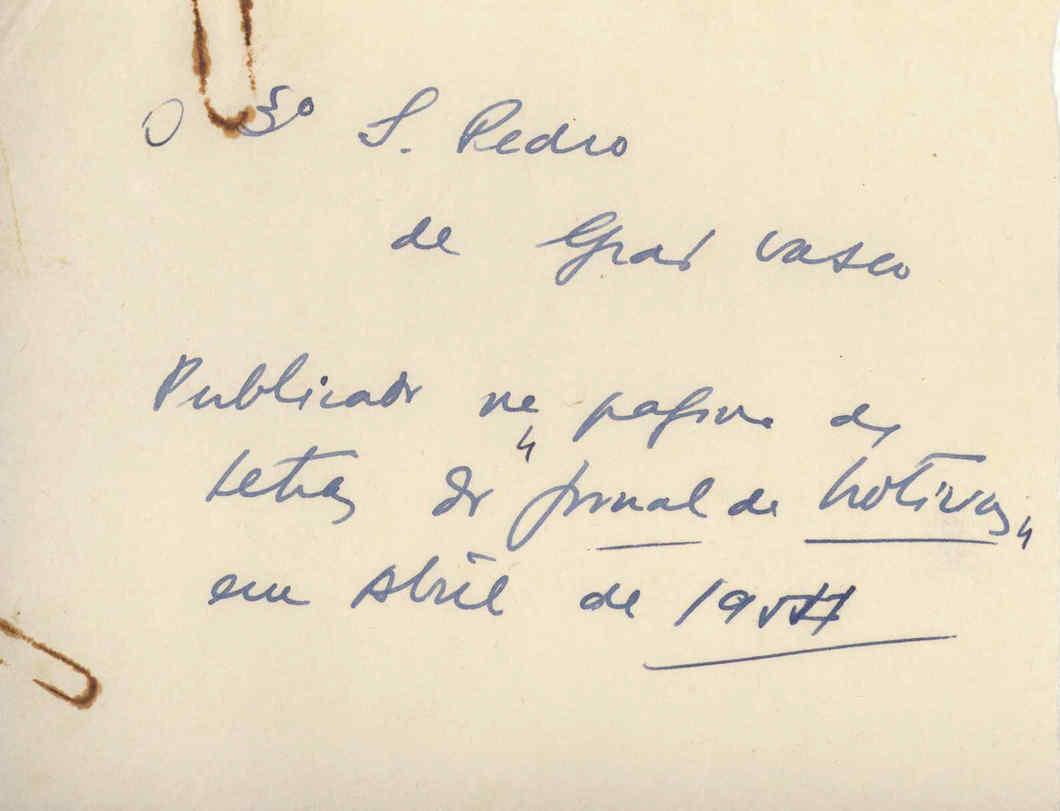 O 3º S. Pedro
de Grão Vasco
Publicado na pagina das
Letras do "Jornal de Notivas"
em Abril de